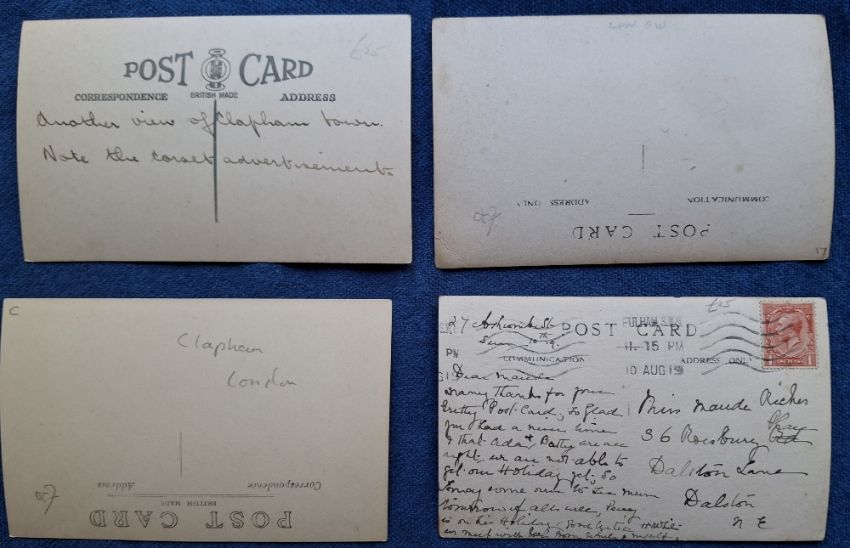 £25
POST CARD
CORRESPONDENCE BRITISH MADE ADDRESS
Another view of Clapham town.
Note the corset advertisements
LDN SW
COMMUNICATION
ADDRESS ONLY
POST CARD
17
C
Clapham
London
Correspondence
Address
BRITISH MADE
POST CARD
£25
27 St
POST CARD
FULHAM S.W.
11. 15 PM
10 AUG 19
PM
COMMUNICATION
ADDRESS ONLY
Dear Maude
Many Thanks for your
Pretty Post Card, so Glad
you had a nice time
& that Ada & are all
right, we are not able to
get our Holiday yet, So
some over to See Mum
tomorrow if all's well, Percy
is on his Holiday
with love from
Miss Maude Riches
36
Dalston Lane
Dalston
N E